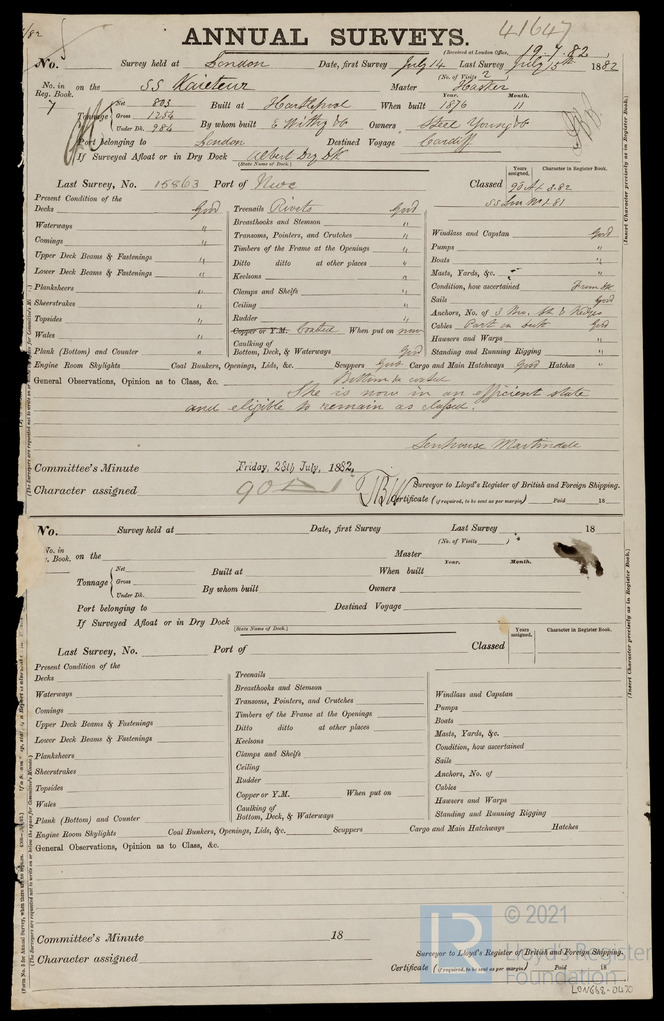 41647
ANNUAL SURVEYS.
(Received at London Office, 19.7.82)
No. Survey held at London Date, first Survey July 14 Last Survey July 15th 1882
(No. of Visits 2)
No. in Reg. Book. 7 on the SS Kaieteur Master
Tonnage Net 803 Gross 1254 Under Dk. 984
Built at Hartlepool When built Year. 1876 Month. 11
By whom built E Withy & Co Owners Steel Young & Co
Port belonging to London Destined Voyage Cardiff
If Surveyed Afloat or in Dry Dock Albert Dry Dk
(State Name of Dock.)
Last Survey, No. 15863 Port of Nwc Classed
Years assigned. Character in Register Book.
Present Condition of the
Decks Good
Waterways "
Comings "
Upper Deck Beams & Fastenings "
Lower Deck Beams & Fastenings "
Planksheers "
Sheerstrakes "
Topsides "
Wales "
Plank (Bottom) and Counter "
Treenails Rivets Good
Breasthooks and Stemson "
Transoms, Pointers, and Crutches "
Timbers of the Frame at the Openings "
Ditto ditto at other places "
Keelsons "
Clamps and Shelfs "
Ceiling "
Rudder "
Copper or Y.M. Coated When put on now
Caulking of
Bottom, Deck, & Waterways Good
Windlass and Capstan Good
Pumps "
Boats "
Masts, Yards, &c. "
Condition, how ascertained From Dk
Sails Good
Anchors, No. of
Cables Good
Hawsers and Warps "
Standing and Running Rigging "
Engine Room Skylights Coal Bunkers, Openings, Lids, &c. Scuppers Good Cargo and Main Hatchways Good Hatches "
General Observations, Opinion as to Class, &c. Bottom coated
She is now in an efficient state
and eligible to remain as classed.
Senhouse Martindale
Committee's Minute Friday, 28th July, 1882.
Surveyor to Lloyd's Register of British and Foreign Shipping.
Character assigned 90A1
Certificate (if required, to be sent as per margin) Paid 18
No. Survey held at Date, first Survey Last Survey 18
(No. of Visits )
No. in Reg. Book. on the Master
Tonnage Net Gross Under Dk.
Built at When built Year. Month.
By whom built Owners
Port belonging to Destined Voyage
If Surveyed Afloat or in Dry Dock
(State Name of Dock.)
Last Survey, No. Port of Classed
Years assigned. Character in Register Book.
Present Condition of the
Decks
Waterways
Comings
Upper Deck Beams & Fastenings
Lower Deck Beams & Fastenings
Planksheers
Sheerstrakes
Topsides
Wales
Plank (Bottom) and Counter
Treenails
Breasthooks and Stemson
Transoms, Pointers, and Crutches
Timbers of the Frame at the Openings
Ditto ditto at other places
Keelsons
Clamps and Shelfs
Ceiling
Rudder
Copper or Y.M. When put on
Caulking of
Bottom, Deck, & Waterways
Windlass and Capstan
Pumps
Boats
Masts, Yards, &c.
Condition, how ascertained
Sails
Anchors, No. of
Cables
Hawsers and Warps
Standing and Running Rigging
Engine Room Skylights Coal Bunkers, Openings, Lids, &c. Scuppers Cargo and Main Hatchways Hatches
General Observations, Opinion as to Class, &c.
Committee's Minute 18
Surveyor to Lloyd's Register of British and Foreign Shipping.
Character assigned
Certificate (if required, to be sent as per margin) Paid 18
LON668-0470
(Insert Character precisely as in Register Book.)
(Insert Character precisely as in Register Book.)
LR
© 2021
Lloyd's Register
Foundation